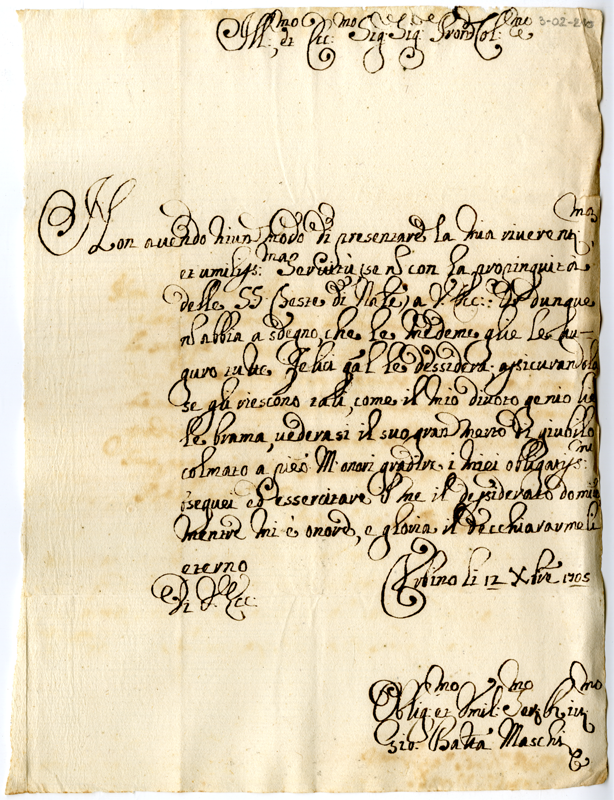 Ill:mo et Ecc:mo Sig:re Sig:re Pron Col:mo
3-02-2
Non avendo niun modo di presentare la mia riverent:ma
et umiliss:ma Servitù, se nō con la propinquità
delle SS: Feste di Nate, a V. Ecc:
nō abbia a sdegno, che le medeme glie le au-
guro tutte Felici qāl le dessidera, assicurandola
se gli riescono tali, come il mio divoto genio
le brama, vederassi il suo gran merto di giubilo
colmato a pieō. M'onori gradire i miei obligatiss:mi
ossequi ed essercitare s me il dessiderato domin
mentre mi è onore, e gloria il decchiararmeli
eterno
Di V. Ecc:
Urbino li 12 Xbre 1705
Oblig:mo et Umil:mo Ser:
Gio: Batta Maschi